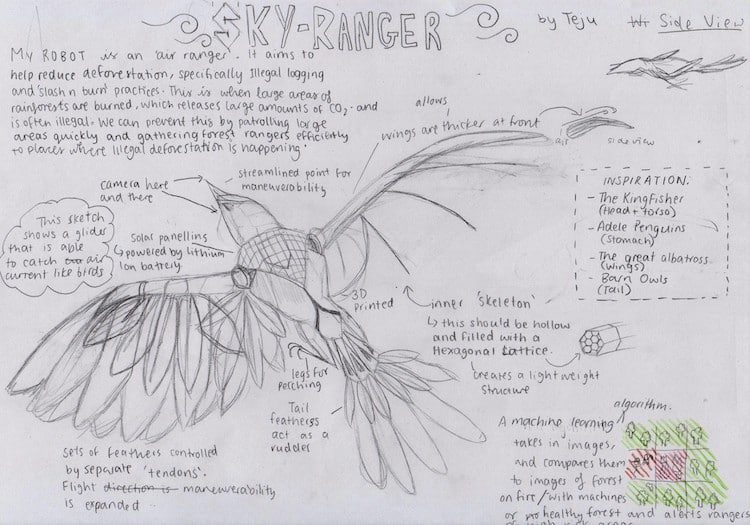 SKY-RANGER
by Teju
Side View
My ROBOT is an 'air ranger'. It aims to
help reduce deforestation, specifically Illegal logging
and 'slash n burn' practices. This is when large areas of
rainforests are burned, which releases large amounts of CO₂ and
is often illegal. We can prevent this by patrolling large
areas quickly and gathering forest rangers efficiently
to places where illegal deforestation is happening.
allows
wings are thicker at front
air
side view
camera here
and there
streamlined point for
maneuverability
This sketch
shows a glider
that is able
to catch air
current like birds
Solar panelling
↳ powered by Lithium
Ion battery
INSPIRATION.
- The Kingfisher
(Head + torso)
- Adele Penguins
(Stomach)
- The great albatross
(wings)
- Barn Owls
(Tail)
3D
Printed
inner 'skeleton'
↳ this should be hollow
and filled with a
Hexagonal Lattice.
↳ creates a light weight
structure
legs for
perching
Tail
feathers
act as a
rudder
sets of feathers controlled
by separate 'tendons'.
Flight direction is maneuverability
is expanded
algorithm.
A machine learning
takes in images,
and compares them
to images of forest
on fire/with machines
or healthy forest and alerts rangers